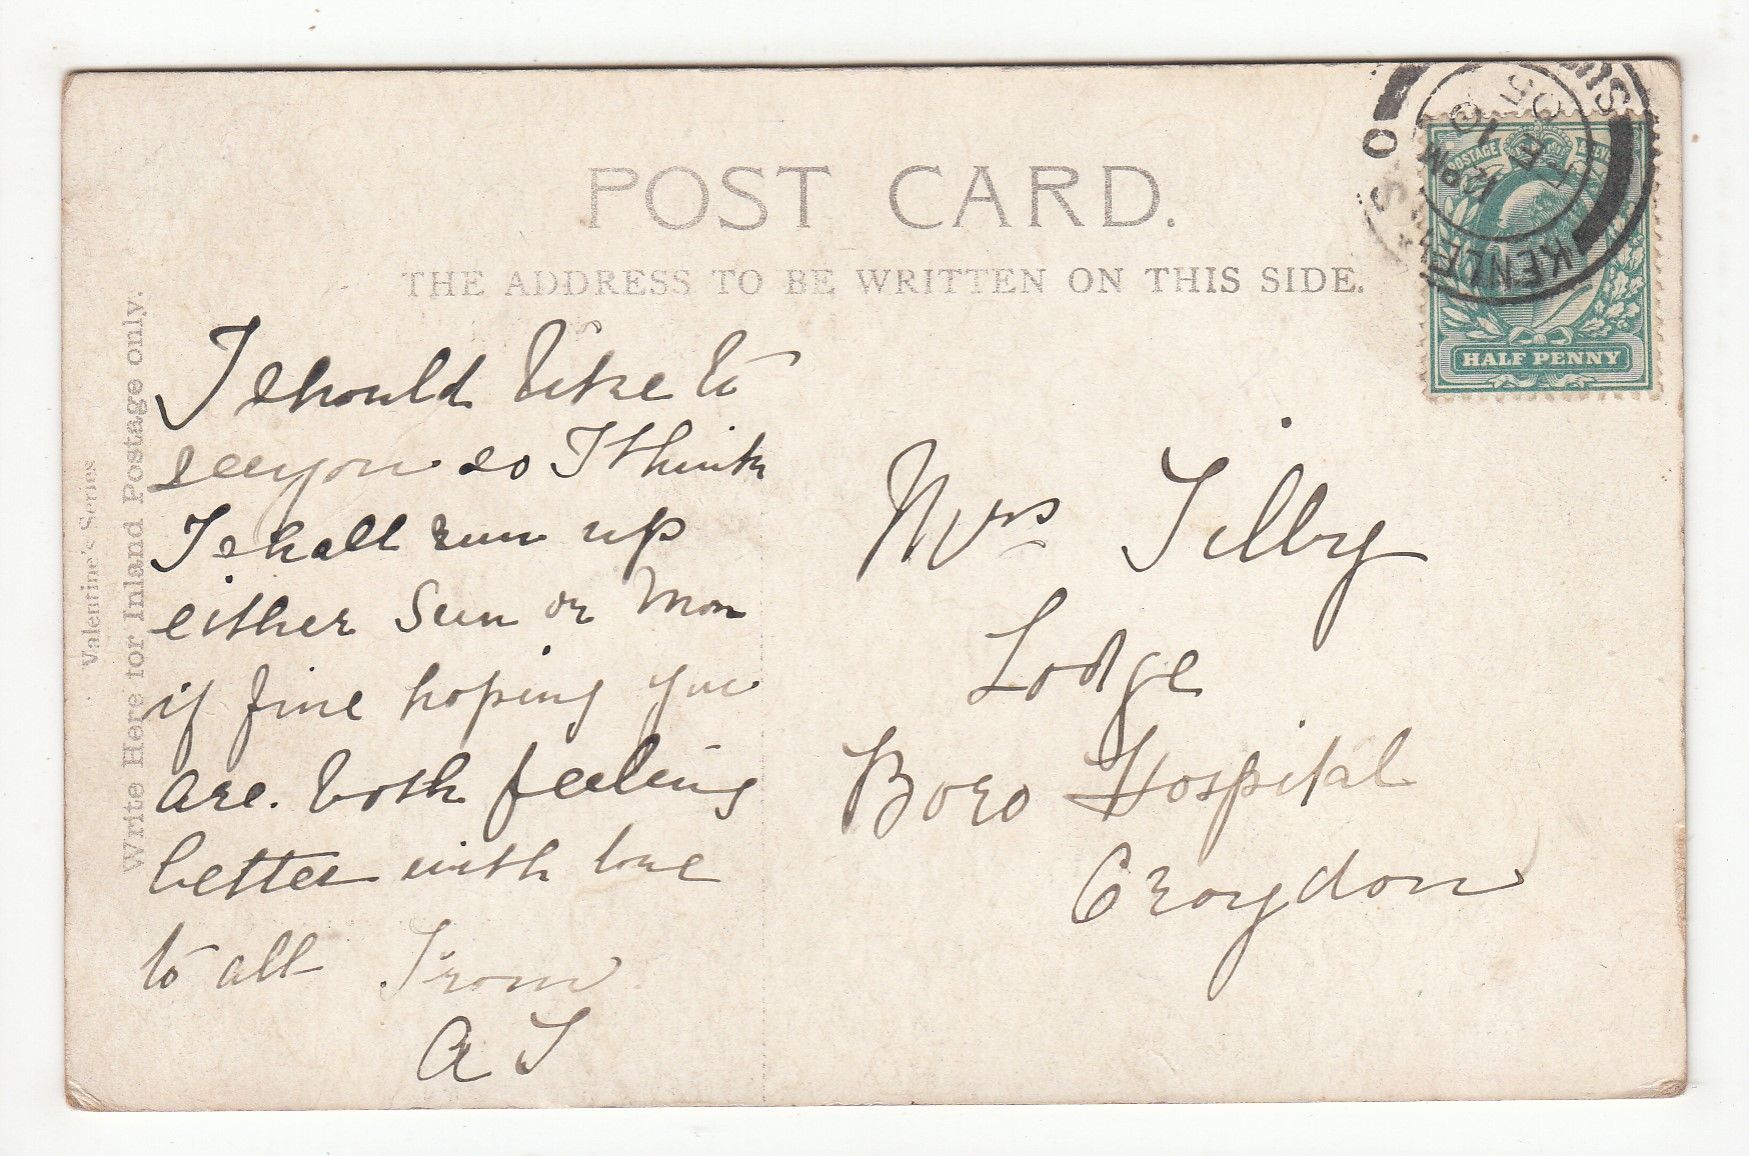 POST CARD.
THE ADDRESS TO BE WRITTEN ON THIS SIDE.
Valentine's Series
Write Here for Inland Postage only.
I should like to
see you so I think
I shall run up
either Sun or Mon
if fine hoping you
are. both feeling
better with love
to all From
A T
Mrs Tilby
Lodge
Boro Hospital
Croydon
POSTAGE
HALF PENNY
KENLEY
S O